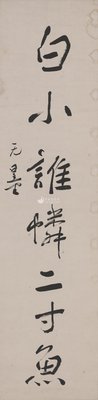 白小誰憐二寸魚
元曇